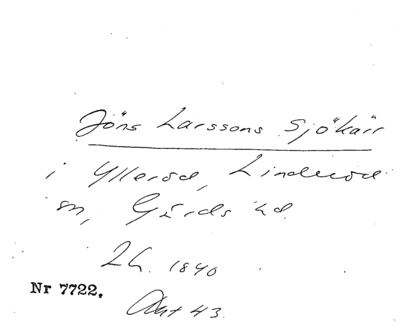 Jöns Larssons Sjökärr
i Ylleröd, Linderöd
sn, Gärds hd.
2h. 1840
Nr 7722.
Akt 43.